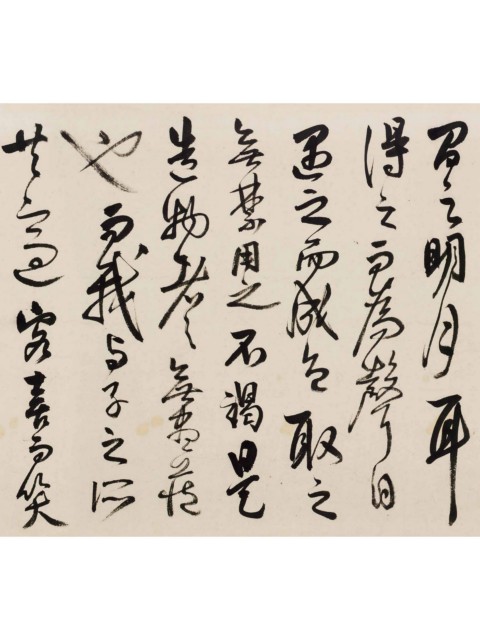 間之明月耳
得之而為聲目
遇之而成色取之
無禁用之不竭是
造物者之無盡藏
也而我与子之所
共適客喜而笑